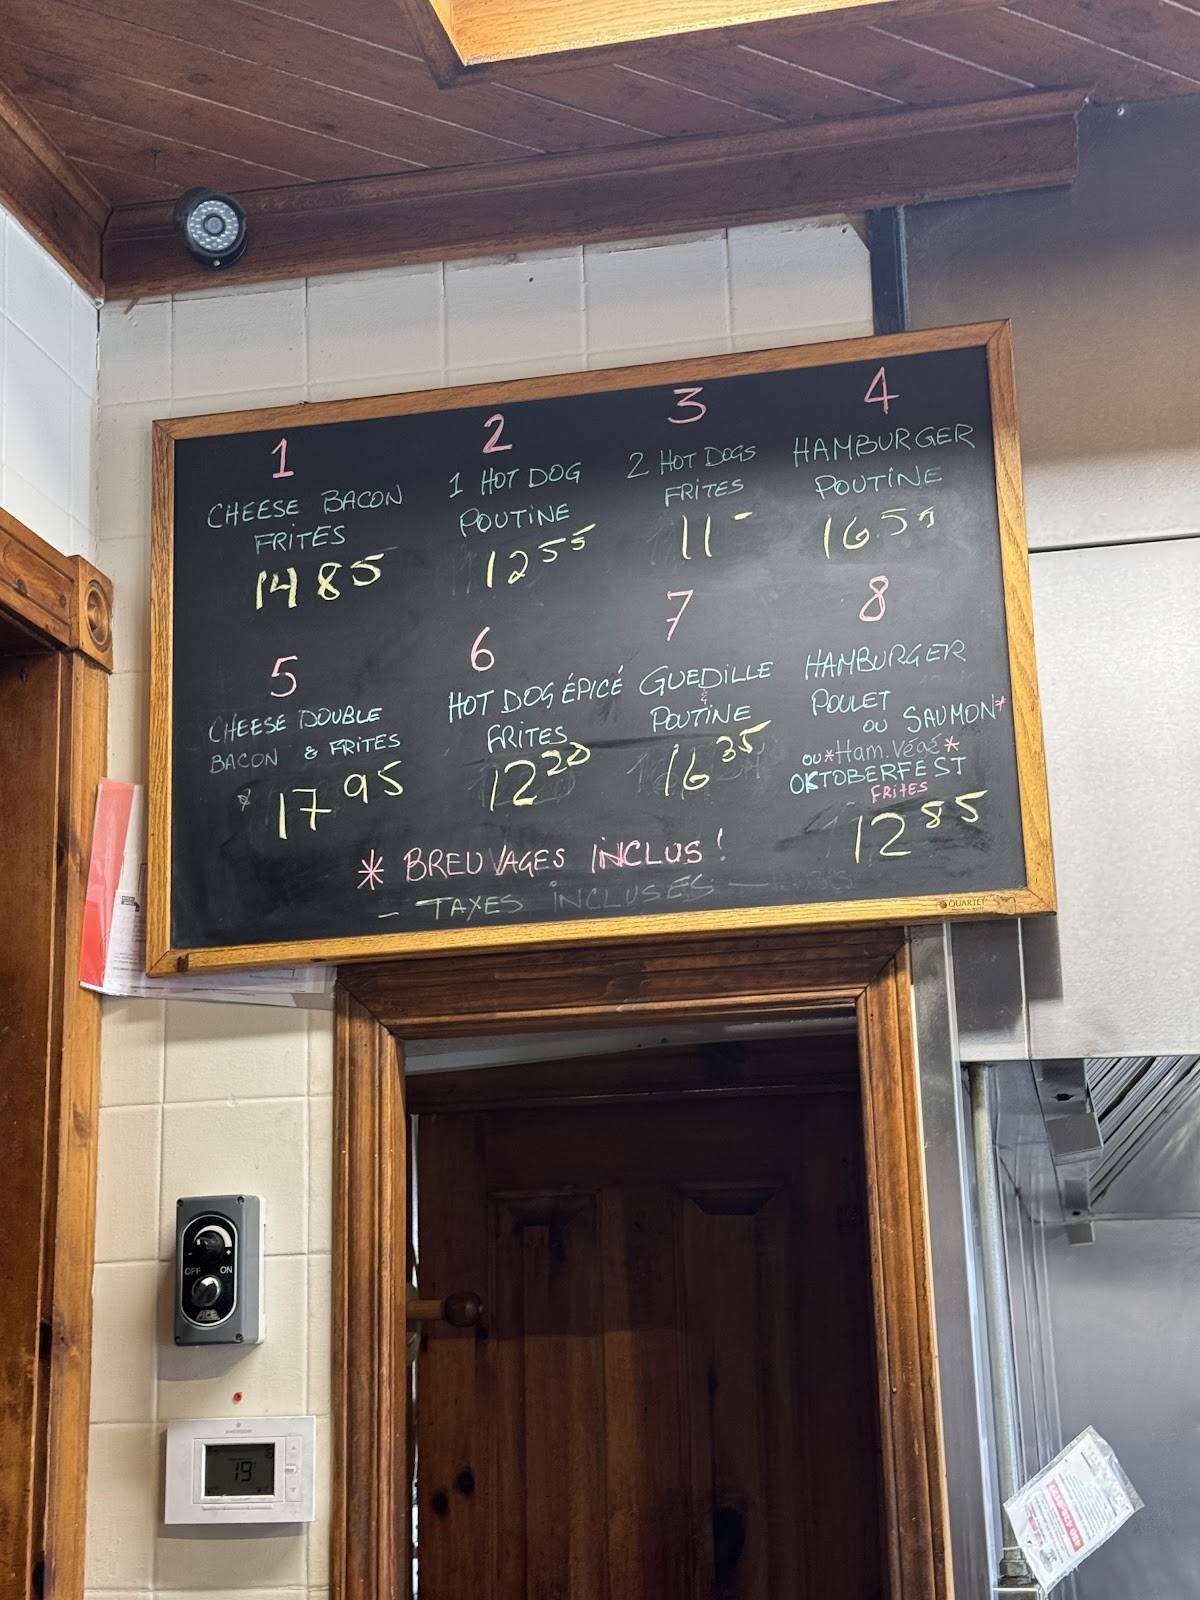 1
CHEESE BACON
FRITES
14 85
2
1 HOT DOG
POUTINE
12 55
3
2 HOT DOGS
FRITES
11 -
4
HAMBURGER
POUTINE
16 55
5
CHEESE DOUBLE
BACON & FRITES
17 95
6
HOT DOG ÉPICÉ
FRITES
12 20
7
GUEDILLE
&
POUTINE
16 35
8
HAMBURGER
POULET
OU SAUMON*
OU *Ham. Végé*
OKTOBERFEST
FRITES
12 85
* BREUVAGES INCLUS !
- TAXES INCLUSES -
QUARTET
OFF ON
19